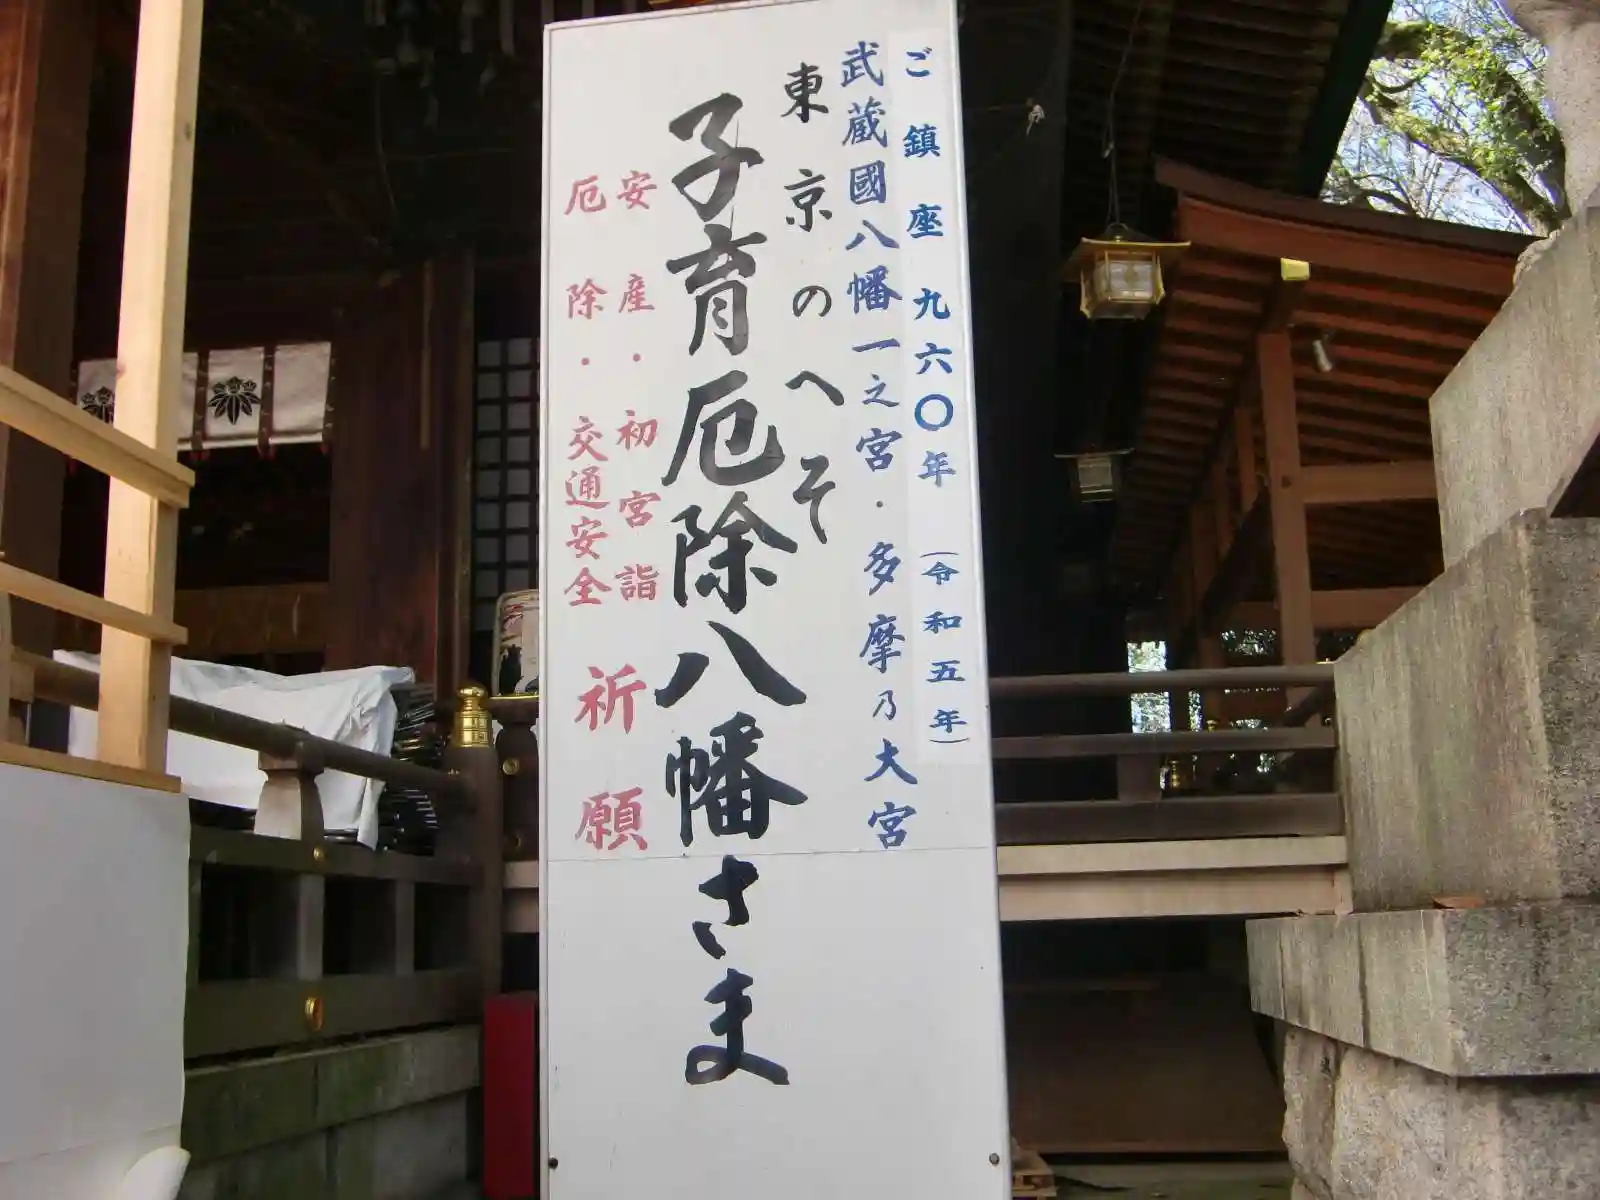 ご鎮座九六〇年（令和五年）
武蔵國八幡一之宮・多摩乃大宮
東京のへそ
子育厄除八幡さま
安産・初宮詣
厄除・交通安全
祈願